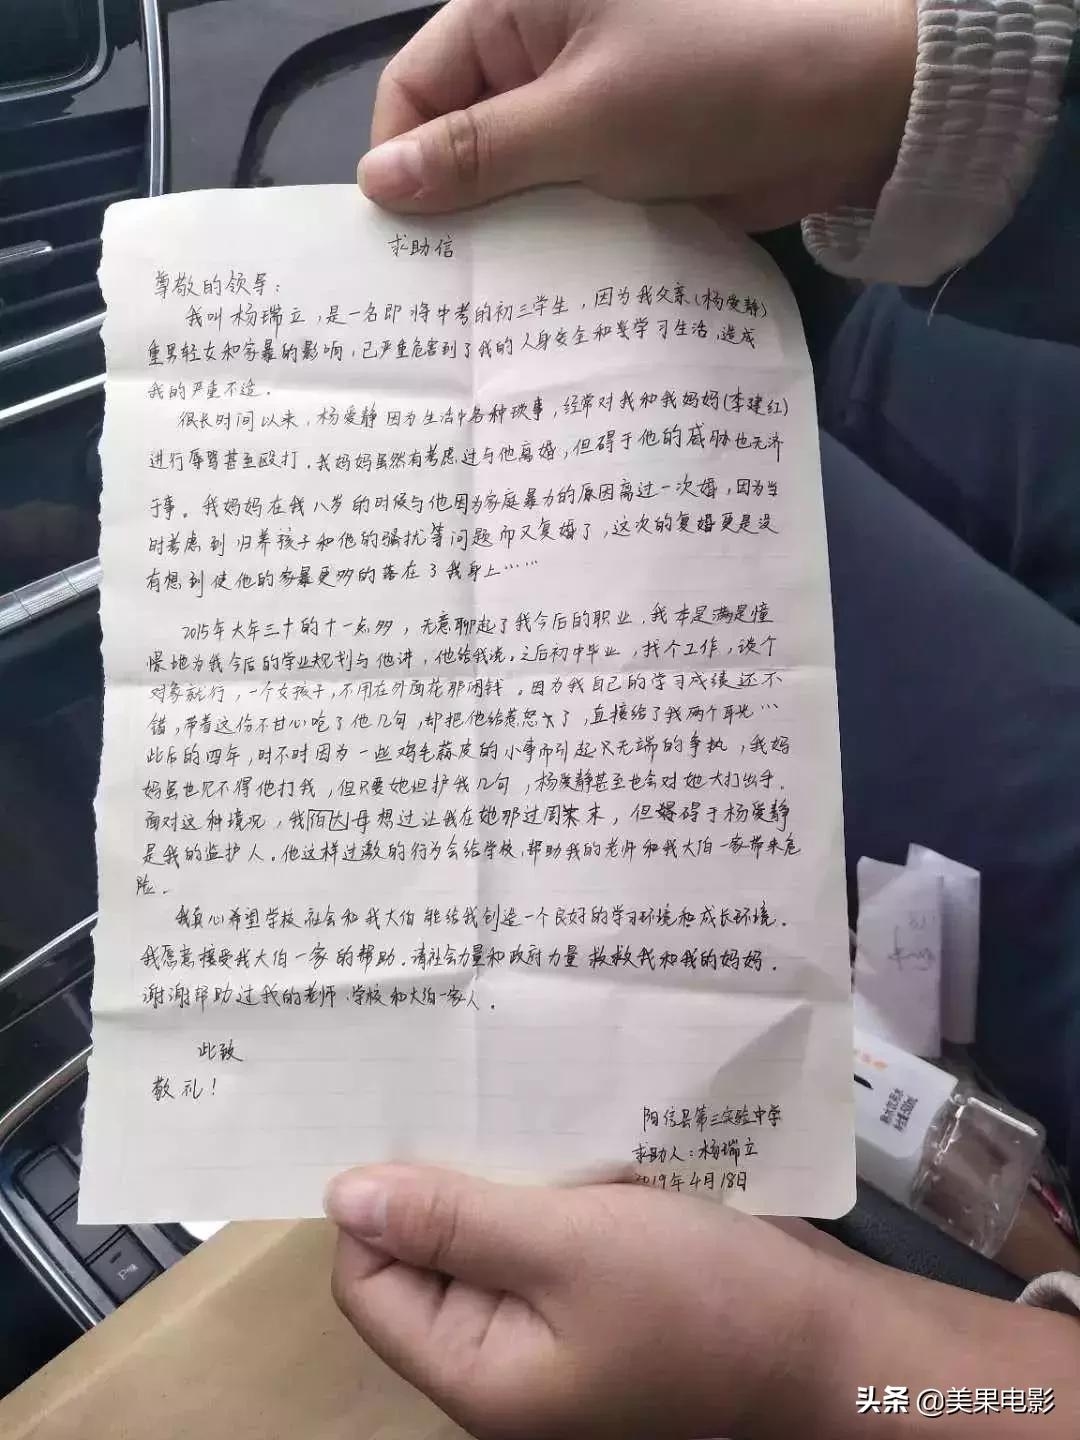 求助信
尊敬的领导：
我叫杨瑞立，是一名即将中考的初三学生，因为我父亲(杨爱静)
重男轻女和家暴的影响，已严重危害到了我的人身安全和学习生活，造成
我的严重不适。
很长时间以来，杨爱静因为生活中各种琐事，经常对我和我妈妈(李建红)
进行辱骂甚至殴打。我妈妈虽然有考虑过与他离婚，但碍于他的威胁也无济
于事。我妈妈在我八岁的时候与他因为家庭暴力的原因离过一次婚，因为当
时考虑到归养孩子和他的骚扰等问题而又复婚了，这次的复婚更是没
有想到使他的家暴更多的落在了我身上……
2015年大年三十的十一点多，无意聊起了我今后的职业，我本是满是憧
憬地为我今后的学业规划与他讲，他给我说。之后初中毕业，找个工作，谈个
对象就行，一个女孩子，不用在外面花那闲钱。因为我自己的学习成绩还不
错，带着这份不甘心吃了他几句，却把他给惹怒了，直接给了我两个耳光…
此后的四年，时不时因为一些鸡毛蒜皮的小事而引起无端的争执，我妈
妈虽也见不得他打我，但只要她袒护我几句，杨爱静甚至也会对她大打出手。
面对这种境况，我伯母想过让我在她那过周末，但碍于杨爱静
是我的监护人。他这样过激的行为会给学校、帮助我的老师和我大伯一家带来危
险。
我真心希望学校社会和我大伯能给我创造一个良好的学习环境和成长环境。
我愿意接受我大伯一家的帮助。请社会力量和政府力量救救我和我的妈妈。
谢谢帮助过我的老师、学校和大伯一家人。
此致
敬礼！
阳信县第三实验中学
求助人：杨瑞立
2019年4月18日
头条 @美果电影